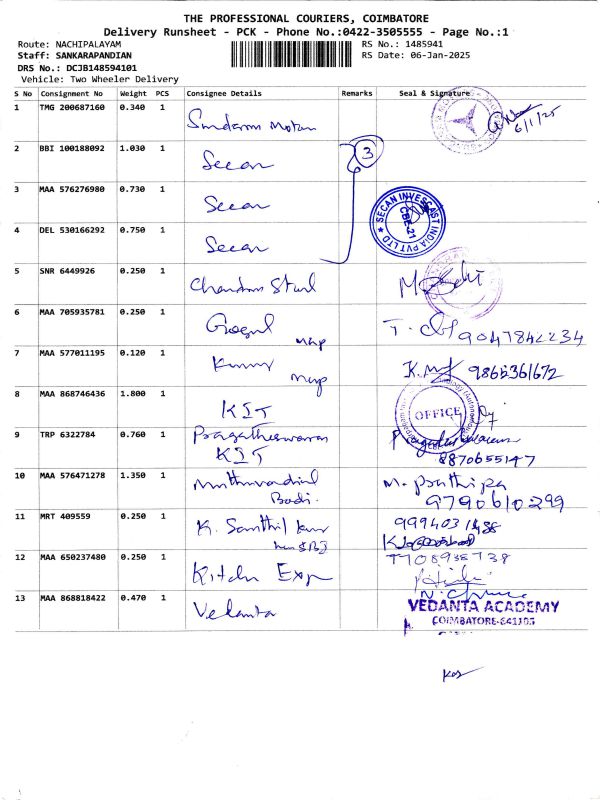 THE PROFESSIONAL COURIERS, COIMBATORE
Delivery Runsheet - PCK - Phone No.:0422-3505555 - Page No.:1
Route: NACHIPALAYAM
Staff: SANKARAPANDIAN
DRS No.: DCJB148594101
Vehicle: Two Wheeler Delivery
RS No.: 1485941
RS Date: 06-Jan-2025
S No Consignment No Weight PCS Consignee Details Remarks Seal & Signature
1 TMG 200687160 0.340 1 Sundaram Motars
6/1/25
2 BBI 100188092 1.030 1 Secan 3
3 MAA 576276980 0.730 1 Secan
SECAN INVESCAST INDIA PVT LTD
CBE-21
4 DEL 530166292 0.750 1 Secan
5 SNR 6449926 0.250 1 Chandra Steel
6 MAA 705935781 0.250 1 Gogul 9047842234
7 MAA 577011195 0.120 1 Kumar K.M 9865361672
8 MAA 868746436 1.800 1 KIT
OFFICE
9 TRP 6322784 0.760 1 Pragatheswaran
KIT
8870655147
10 MAA 576471278 1.350 1 M. Prathipa
Badi. 9790610299
11 MRT 409559 0.250 1 K. Santhil
12 MAA 650237480 0.250 1 Kitchn Exp
13 MAA 868818422 0.470 1 Vedanta
VEDANTA ACADEMY
COIMBATORE-641105